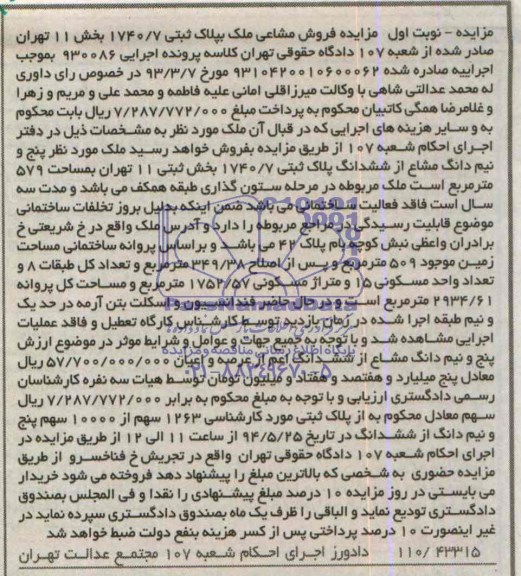 مزایده - نوبت اول مزایده فروش مشاعی ملک بپلاک ثبتی ۱۷۴۰/۷ بخش ۱۱ تهران
صادر شده از شعبه ۱۰۷ دادگاه حقوقی تهران کلاسه پرونده اجرایی ۹۳۰۰۸۶ بموجب
اجراییه صادره شده ۹۳۱۰۴۲۰۰۱۰۶۰۰۰۶۲ مورخ ۹۳/۳/۷ در خصوص رای داوری
له محمد عدالتی شاهی با وکالت میرزاقلی امانی علیه فاطمه و محمد علی و مریم و زهرا
و غلامرضا همگی کاتبیان محکوم به پرداخت مبلغ ۷/۲۸۷/۷۷۲/۰۰۰ ریال بابت محکوم
به و سایر هزینه های اجرایی که در قبال آن ملک مورد نظر به مشخصات ذیل در دفتر
اجرای احکام شعبه ۱۰۷ از طریق مزایده بفروش خواهد رسید ملک مورد نظر پنج و
نیم دانگ مشاع از ششدانگ پلاک ثبتی ۱۷۴۰/۷ بخش ثبتی ۱۱ تهران بمساحت ۵۷۹
مترمربع است ملک مربوطه در مرحله ستون گذاری طبقه همکف می باشد و مدت سه
سال است فاقد فعالیت ساختمانی می باشد ضمن اینکه بدلیل بروز تخلفات ساختمانی
موضوع قابلیت رسیدگی در مراجع مربوطه را دارد و آدرس ملک واقع در خ شریعتی خ
برادران واعظی نبش کوچه بام پلاک ۴۲ می باشد و بر اساس پروانه ساختمانی مساحت
زمین موجود ۵۰۹ مترمربع و پس از اصلاح ۳۴۹/۳۸ مترمربع و تعداد کل طبقات ۸ و
تعداد واحد مسکونی ۱۵ و متراژ مسکونی ۱۷۵۲/۵۷ مترمربع و مساحت کل پروانه
۲۹۳۴/۶۱ مترمربع است و در حال حاضر فنداسیون و اسکلت بتن آرمه در حد یک
و نیم طبقه اجرا شده در زمان بازدید توسط کارشناس کارگاه تعطیل و فاقد عملیات
اجرایی مشاهده شد و با توجه به جمیع جهات و عوامل و شرایط موثر در موضوع ارزش
پنج و نیم دانگ مشاع از ششدانگ اعم از عرصه و اعیان ۵۷/۷۰۰/۰۰۰/۰۰۰ ریال
معادل پنج میلیارد و هفتصد و هفتاد و میلیون تومان توسط هیات سه نفره کارشناسان
رسمی دادگستری ارزیابی و با توجه به مبلغ محکوم به برابر ۷/۲۸۷/۷۷۲/۰۰۰ ریال
سهم معادل محکوم به از پلاک ثبتی مورد کارشناسی ۱۲۶۳ سهم از ۱۰۰۰۰ سهم پنج
و نیم دانگ از ششدانگ در تاریخ ۹۴/۵/۲۵ از ساعت ۱۱ الی ۱۲ از طریق مزایده در
اجرای احکام شعبه ۱۰۷ دادگاه حقوقی تهران واقع در تجریش خ فناخسرو از طریق
مزایده حضوری به شخصی که بالاترین مبلغ را پیشنهاد دهد فروخته می شود خریدار
می بایستی در روز مزایده ۱۰ درصد مبلغ پیشنهادی را نقدا و فی المجلس بصندوق
دادگستری تودیع نماید و الباقی را ظرف یک ماه بصندوق دادگستری سپرده نماید در
غیر اینصورت ۱۰ درصد پرداختی پس از کسر هزینه بنفع دولت ضبط خواهد شد
۱۱۰/ ۴۳۳۱۵ دادورز اجرای احکام شعبه ۱۰۷ مجتمع عدالت تهران
پایگاه اطلاع رسانی مناقصه و مزایده
۰۲۱-۸۸۳۴۹۶۷۰-۵